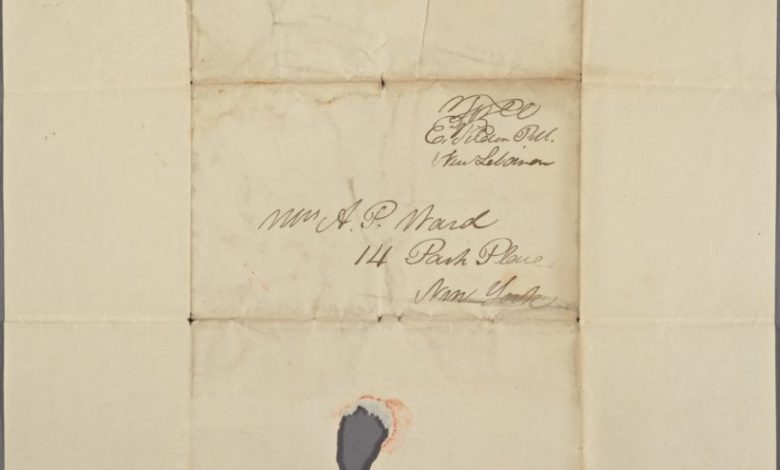 Free
E. Tilden P.M.
New Lebanon
Mrs A. P. Ward
14 Park Place
New York